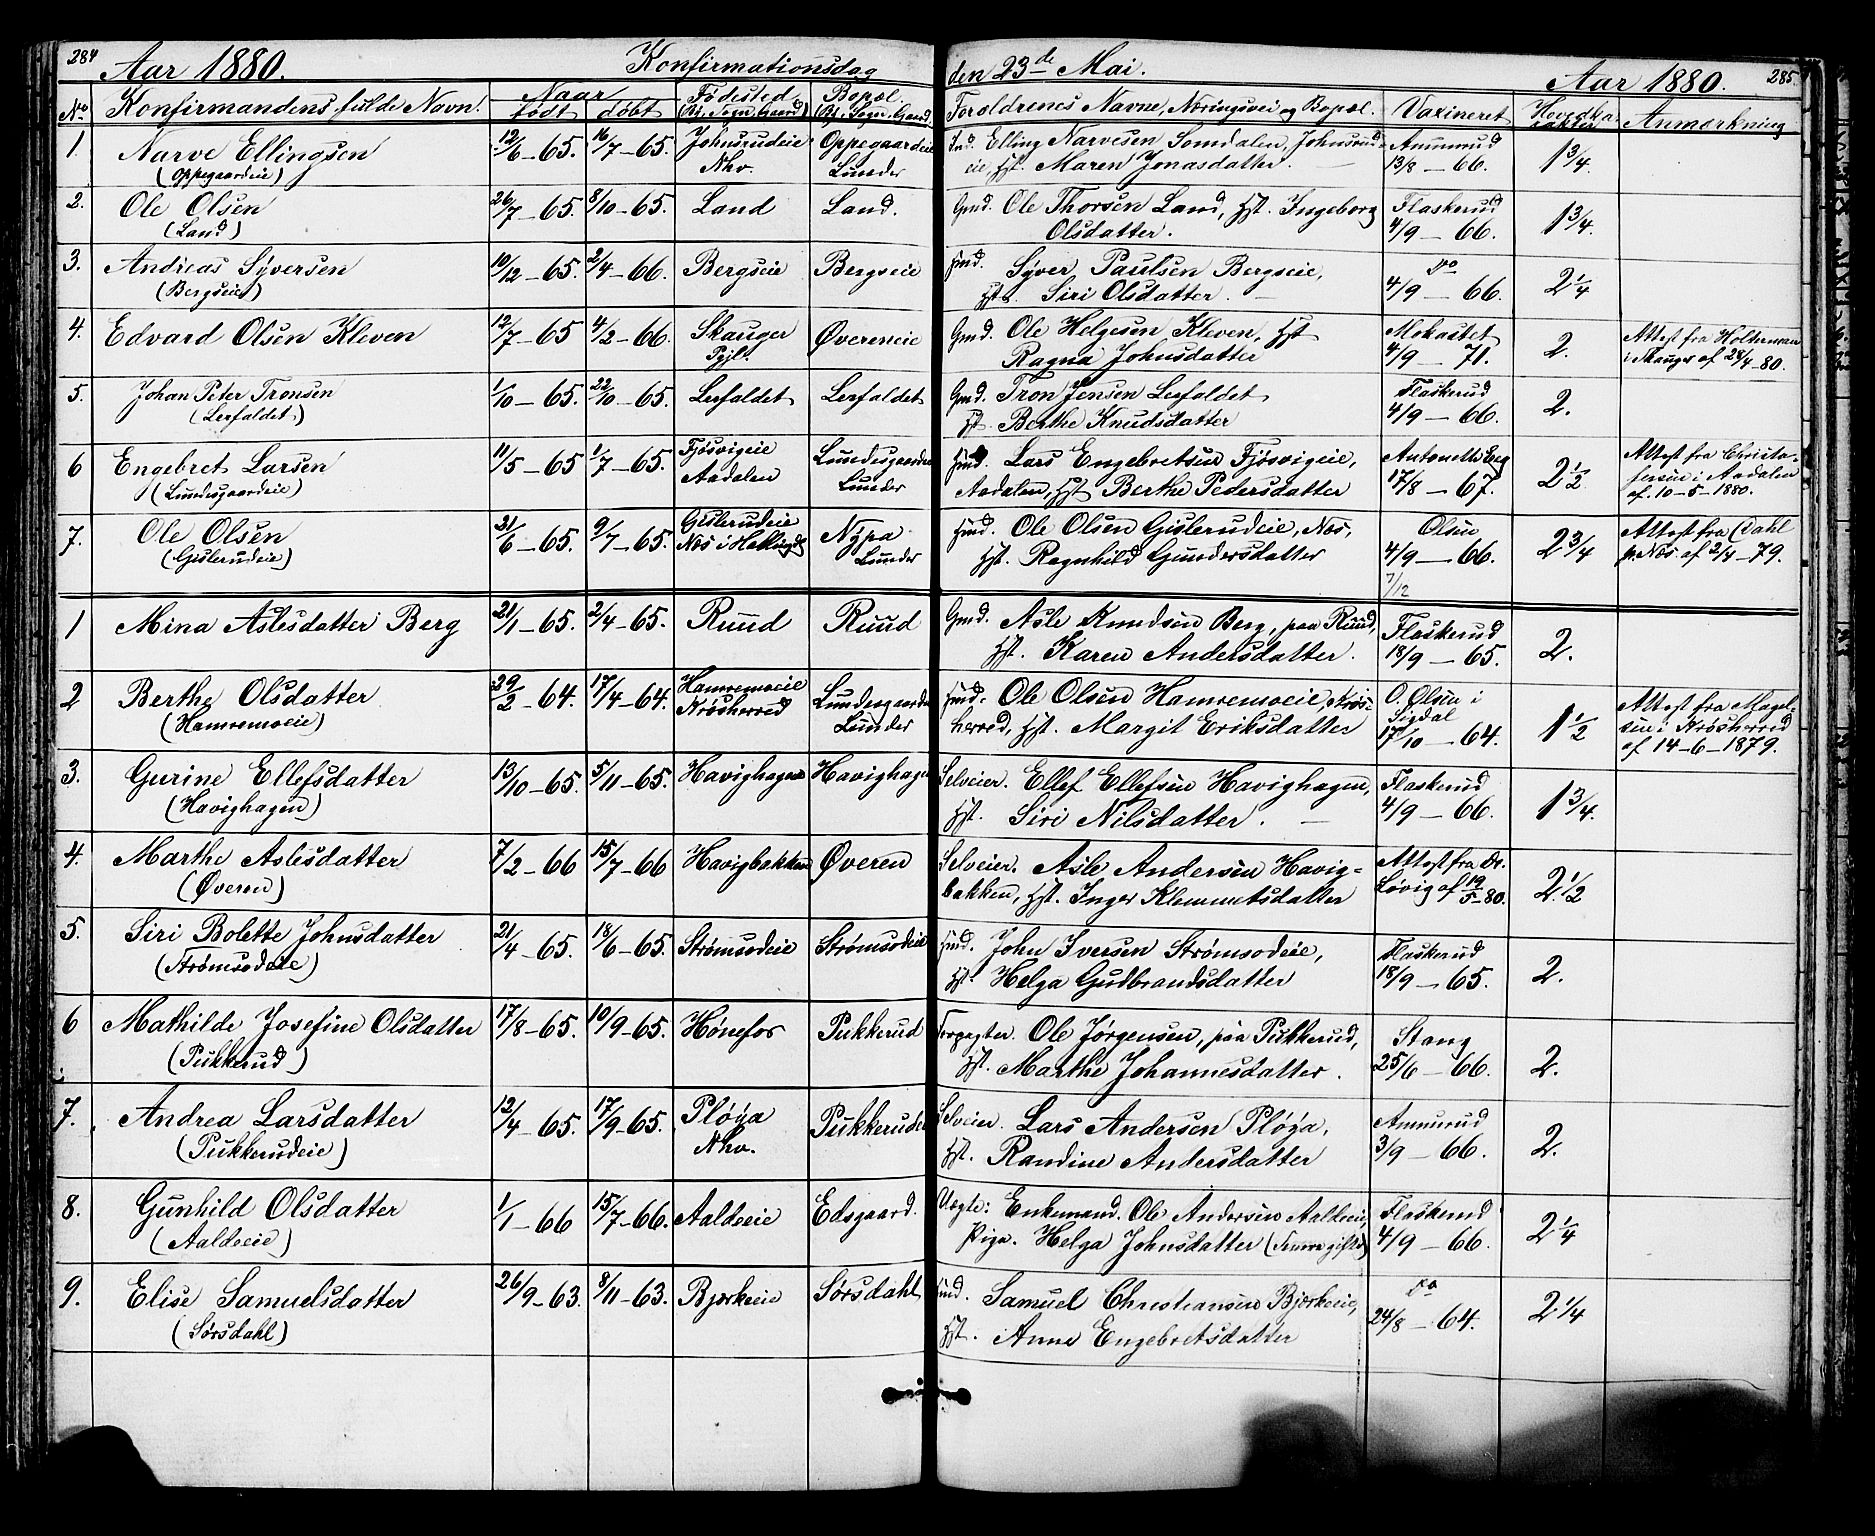 284 Aar 1880. Konfirmationsdag den 23de Mai. Aar 1880. 285
No Konfirmandens fulde Navn. Naar født døbt Fødested (By, Sogn, Gaard) Bopæl (By, Sogn, Gaard) Forældrenes Navne, Næringsvei og Bopæl. Vaxineret Hovedka-rakter Anmærkning
1. Narve Ellingsen 12/6-65. 16/7-65. Johnsrudeie Oppegaardeie Ind. Elling Narvesen Somdalen, Johnsrud- Ammerud 1 3/4.
(Oppegaardeie) Nhv. Lunder eie, Hst. Maren Jonasdatter. 13/8-66.
2. Ole Olsen 26/7-65. 8/10-65. Land Land. Gmd. Ole Thorsen Land, Hst. Ingeborg Flaskerud 1 3/4.
(Land) Olsdatter. 4/9-66.
3. Andreas Syversen 10/12-65. 2/4-66. Bergseie Bergseie Hmd. Syver Paulsen Bergseie, do 2 1/4
(Bergseie) Hst. Siri Olsdatter. 4/9-66.
4. Edvard Olsen Kleven 12/7-65 4/2-66. Skauger Øvereneie Gmd. Ole Helgesen Kleven, Hst Mokastet 2. Attest fra Holterman
Pgjl. Ragna Johnsdatter 4/9-71. i Mauger af 24/4-80.
5. Johan Peter Tronsen 1/10-65. 22/10-65. Lerfaldet Lerfaldet Gmd. Tron Jensen Lerfaldet Flaskerud 2.
(Lerfaldet) Hst. Berthe Knudsdatter 4/9-66.
6 Engebret Larsen 11/5-65 1/7-65. Fjösvigeie Lundesgaardeie Hmd. Lars Engebretsen Fjösvigeie, Antonette Berg 2 1/2 Attest fra Christo-
(Lundesgaardeie) Aadalen Lunder Aadalen, Hst Berthe Pedersdatter 17/8-67. fersen i Aadalen
af. 10-5-1880.
7. Ole Olsen 21/6-65. 9/7-65. Gislerudeie Nÿpa Hmd. Ole Olsen Gislerudeie, Næs, Olsen 2 3/4 Attest fra Dahl
(Gislerudeie) Næs i Hallingd Lunder Hst. Ragnhild Gundersdatter 4/9-66. p. Næs. af 2/4-79.
7/12
1 Mina Aslesdatter Berg 21/1-65. 2/4-65. Ruud Ruud Gmd. Asle Knudsen Berg, paa Ruud, Flaskerud 2.
Hst. Karen Andersdatter. 18/9-65.
2 Berthe Olsdatter 29/2-64. 17/4-64. Hamremoeie Lundesgaardeie Hmd. Ole Olsen Hamremoeie, Krøs- O. Olsen i 1 1/2 Attest fra Magel-
(Hamremoeie) Krøsherred Lunder herred, Hst. Margit Eriksdatter Sigdal sen i Krøsherred
17/10-64. af 14-6-1879.
3. Gurine Ellefsdatter 13/10-65. 5/11-65. Havighagen Havighagen Selveier. Ellef Ellefsen Havighagen, Flaskerud 1 3/4.
(Havighagen) Hst. Siri Nilsdatter. 4/9-66.
4. Marthe Aslesdatter 7/2-66 15/7-66 Havigbakken Øveren Selveier. Asle Andersen Havig= Attest fra Dr. 2 1/2
(Øveren) bakken, Hst. Inger Klemmetsdatter Løvig af 19/5-80.
5. Siri Bolette Johnsdatter 21/4-65. 18/6-65. Strømsodeie Strømsodeie Hmd. John Iversen Strømsodeie, Flaskerud 2.
(Strømsodeie) Hst. Helga Gudbrandsdatter 18/9-65.
6 Mathilde Josefine Olsdatter 17/8-65. 10/9-65. Hønefos Pukkerud Forpagter. Ole Jørgensen, paa Pukkerud, Stang 2.
(Pukkerud) Hst. Marthe Johannesdatter. 25/6-66.
7. Andrea Larsdatter 12/4-65. 17/9-65. Pløÿa Pukkerudeie Selveier. Lars Andersen Pløÿa, Ammerud 2.
(Pukkerudeie) Nhv. Hst. Randine Andersdatter 3/9-66.
8. Gunhild Olsdatter 1/1-66 15/7-66. Aaldeeie Edsgaard. Uægte: Enkemand. Ole Andersen Aaldeeie, Flaskerud 2 1/4
(Aaldeeie) Piga. Helga Johnsdatter (Senere gifte) 4/9-66.
9. Elise Samuelsdatter 26/9-63. 8/11-63. Bjerkeeie Sørsdahl Hmd. Samuel Christiansen Bjerkeeie, do 2 1/4
(Sørsdahl) Hst. Anne Engebretsdatter 24/8-64.